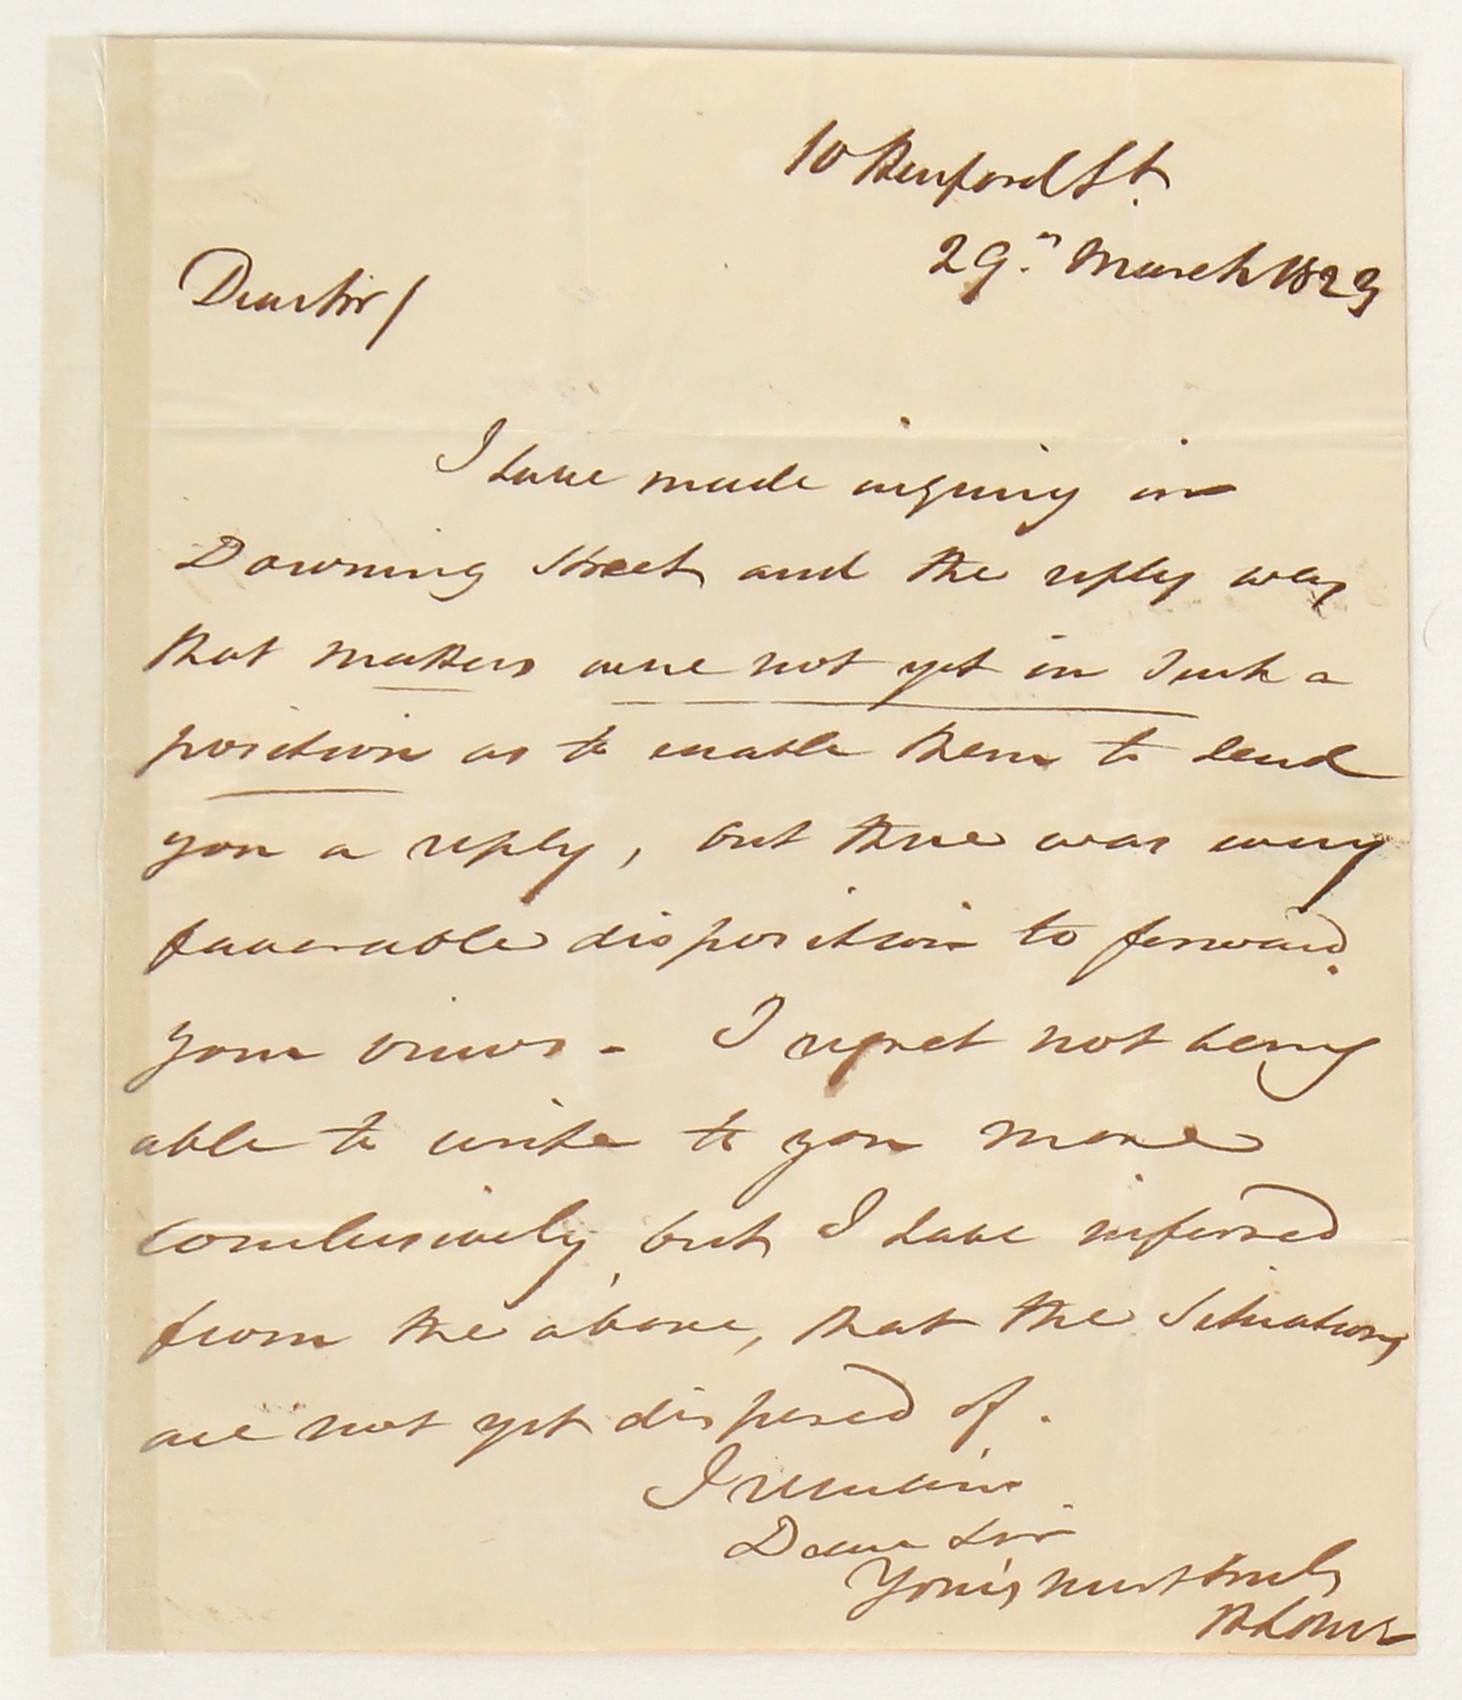 10 Henford St.
29.th March 1823
Dear Sir /
I have made inquiry in
Downing Street and the reply was
that matters were not yet in such a
position as to enable them to send
you a reply, but there was every
favorable disposition to forward
your views - I regret not being
able to write to you more
conclusively, but I have inferred
from the above, that the Situations
are not yet disposed of.
I remain
Dear Sir
Yours most truly